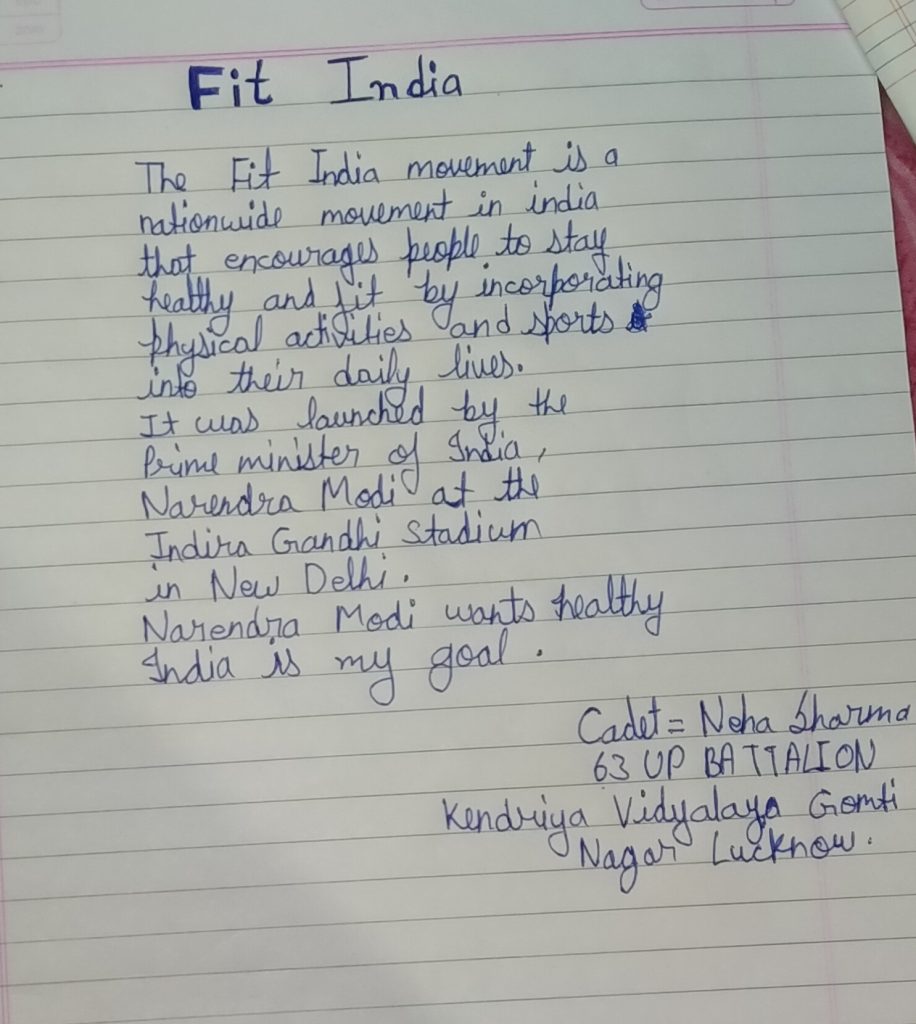 Fit India
The Fit India movement is a
nationwide movement in india
that encourages people to stay
healthy and fit by incorporating
physical activities and sports
into their daily lives.
It was launched by the
Prime minister of India,
Narendra Modi at the
Indira Gandhi Stadium
in New Delhi.
Narendra Modi wants healthy
India is my goal.
Cadet = Neha Sharma
63 UP BATTALION
Kendriya Vidyalaya Gomti
Nagar Lucknow.